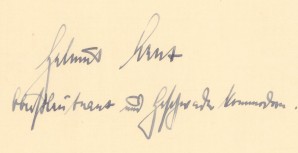 Helmut Lent
Oberstleutnant und Geschwader Kommodore.